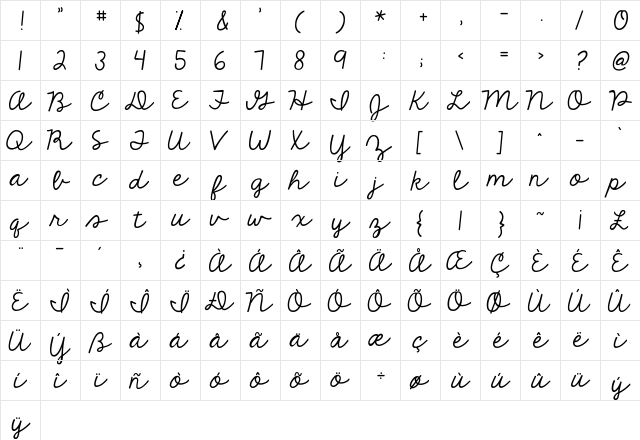 ! " # $ % & ' ( ) * + , - . / 0
1 2 3 4 5 6 7 8 9 : ; < = > ? @
A B C D E F G H I J K L M N O P
Q R S T U V W X Y Z [ \ ] ^ _ `
a b c d e f g h i j k l m n o p
q r s t u v w x y z { | } ~ ¡ £
¨ ¯ ´ ¸ ¿ À Á Â Ã Ä Å Æ Ç È É Ê
Ë Ì Í Î Ï Ð Ñ Ò Ó Ô Õ Ö Ø Ù Ú Û
Ü Ý ß à á â ã ä å æ ç è é ê ë ì
í î ï ñ ò ó ô õ ö ÷ ø ù ú û ü ý
ÿ